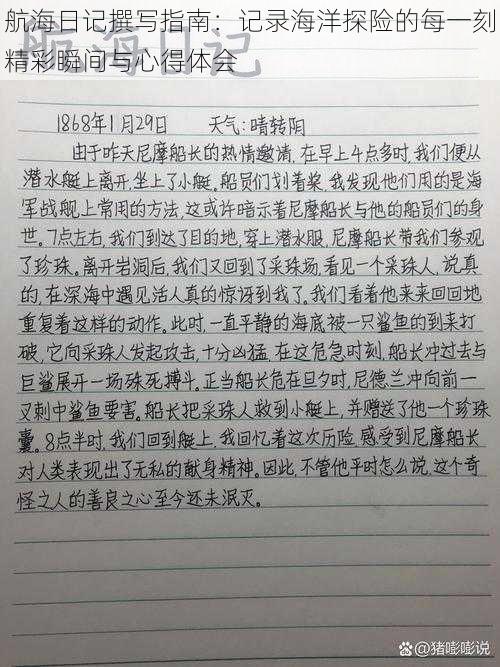 航海日记撰写指南：记录海洋探险的每一刻
精彩瞬间与心得体会
航海日记
1868年1月29日 天气:晴转阴
由于昨天尼摩船长的热情邀请,在早上4点多时,我们便从
潜水艇上离开,坐上了小艇。船员们划着桨,我发现他们用的是海
军战舰上常用的方法,这或许暗示着尼摩船长与他的船员们的身
世。7点左右,我们到达了目的地,穿上潜水服,尼摩船长带我们参观
了珍珠。离开岩洞后,我们又回到了采珠场,看见一个采珠人,说真
的,在深海中遇见活人真的惊讶到我了。我们看着他来来回回地
重复着这样的动作。此时,一直平静的海底被一只鲨鱼的到来打
破,它向采珠人发起攻击,十分凶猛,在这危急时刻,船长冲过去与
巨鲨展开一场殊死搏斗。正当船长危在旦夕时,尼德兰冲向前一
叉刺中鲨鱼要害。船长把采珠人救到小艇上,并赠送了他一个珍珠
囊。8点半时,我们回到艇上,我回忆着这次历险,感受到尼摩船长
对人类表现出了无私的献身精神。因此,不管他平时怎么说,这个奇
怪之人的善良之心至今还未泯灭。
@猪嘭嘭说